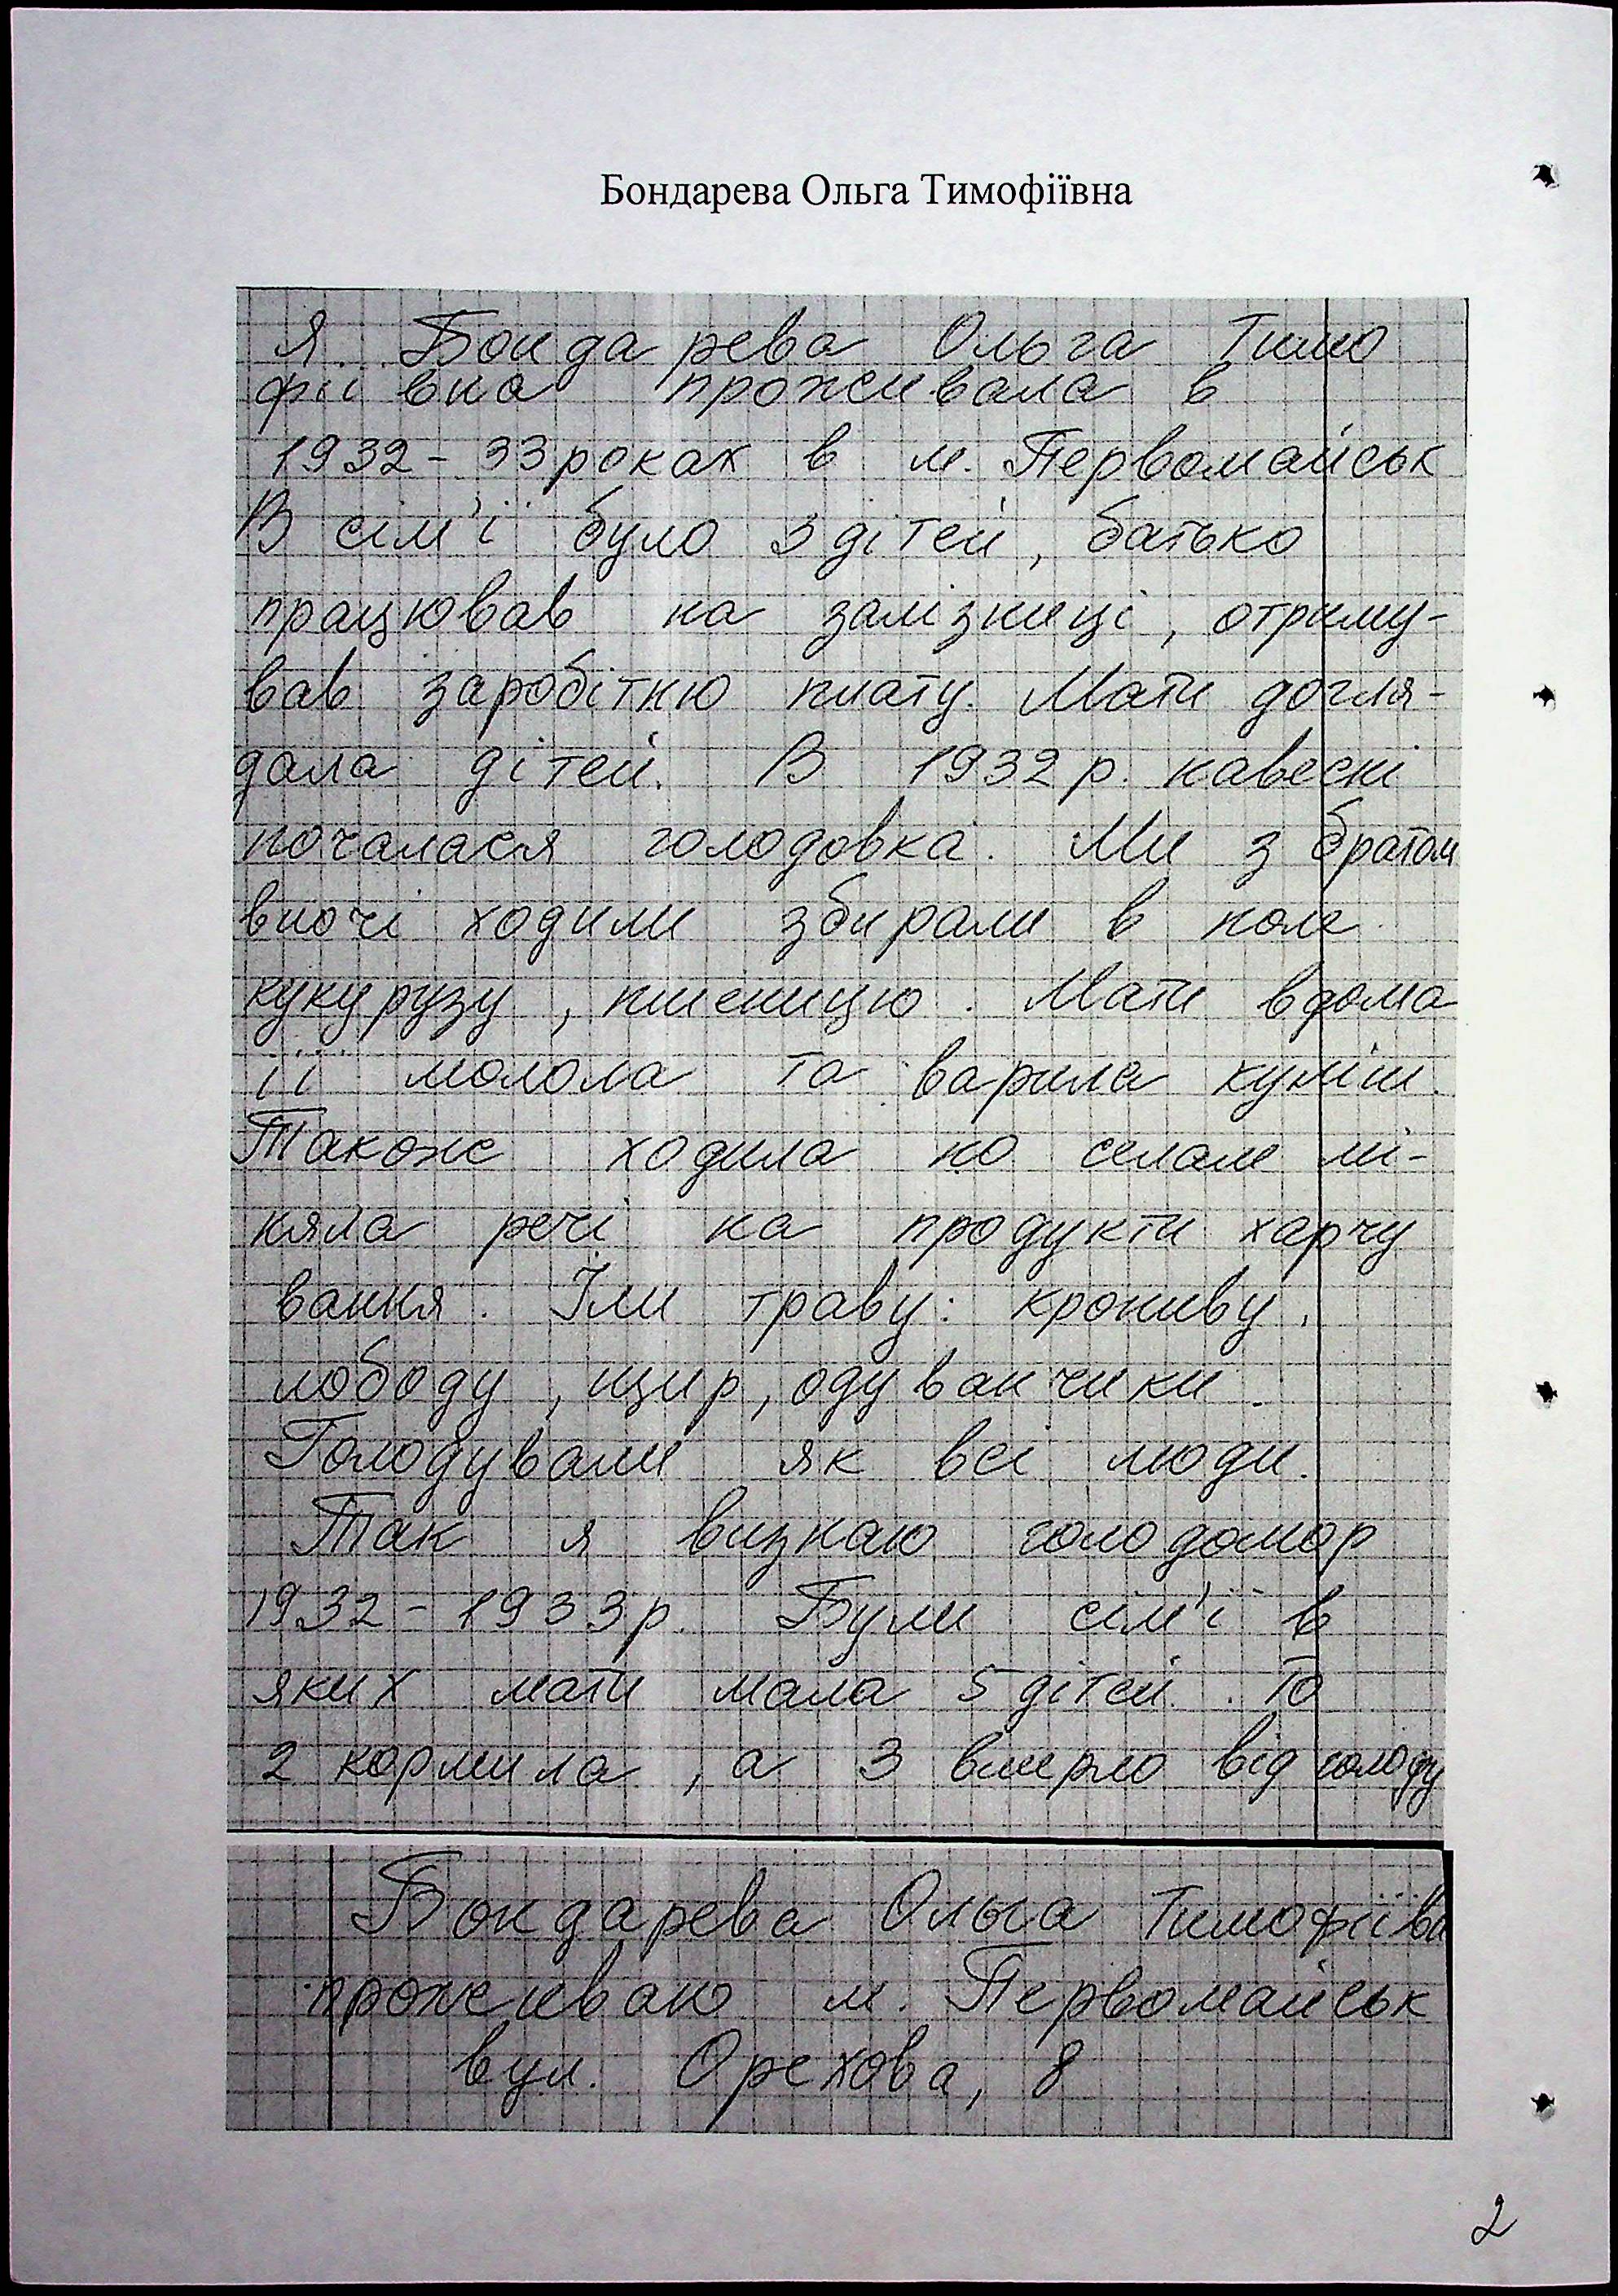 Бондарева Ольга Тимофіївна
Я Бондарева Ольга Тимо
фіївна проживала в
1932-33 роках в м. Первомайськ
В сім'ї було 3 дітей, батько
працював на залізниці, отриму-
вав заробітню плату. Мати догля-
дала дітей. В 1932 р. навесні
почалася голодовка. Ми з братом
вночі ходили збирали в поле
кукурузу, пшеницю. Мати вдома
її молола та варила куліш.
Також ходила по селам мі-
няла речі на продукти харчу
вання. Їли траву: кропиву,
лободу, щир, одуванчики.
Голодували як всі люди.
Так я визнаю голодомор
1932-1933р. Були сім'ї в
яких мати мала 5 дітей. То
2 кормила, а 3 вмерло від голоду
Бондарева Ольга Тимофіївн
проживаю м. Первомайськ
вул. Орехова, 8
2